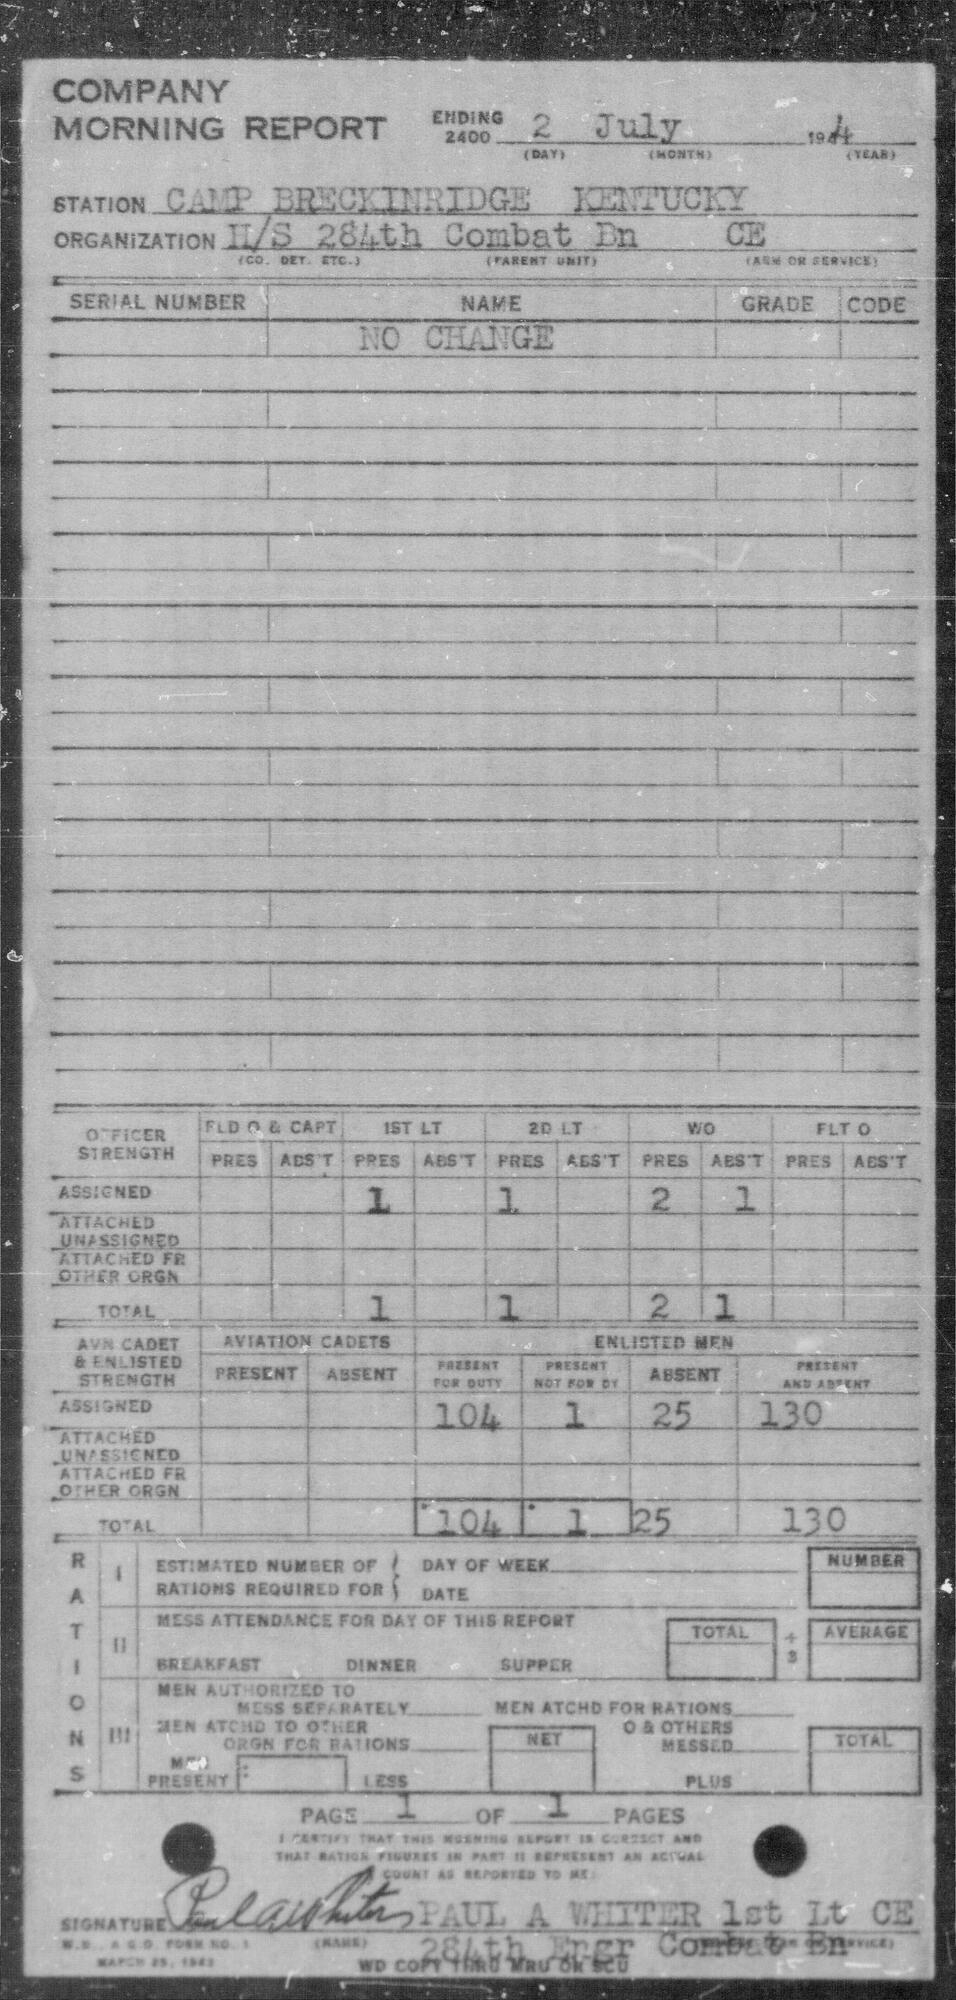 COMPANY
MORNING REPORT ENDING 2400 2 July 1944
(DAY) (MONTH) (YEAR)
STATION CAMP BRECKINRIDGE KENTUCKY
ORGANIZATION H/S 284th Combat Bn CE
(CO. DET. ETC.) (PARENT UNIT) (ARM OR SERVICE)
SERIAL NUMBER NAME GRADE CODE
NO CHANGE
OFFICER STRENGTH FLD O & CAPT 1ST LT 2D LT WO FLT O
PRES ABS'T PRES ABS'T PRES ABS'T PRES ABS'T PRES ABS'T
ASSIGNED 1 1 2 1
ATTACHED UNASSIGNED
ATTACHED FR OTHER ORGN
TOTAL 1 1 2 1
AVN CADET & ENLISTED STRENGTH AVIATION CADETS ENLISTED MEN
PRESENT ABSENT PRESENT FOR DUTY PRESENT NOT FOR DY ABSENT PRESENT AND ABSENT
ASSIGNED 104 1 25 130
ATTACHED UNASSIGNED
ATTACHED FR OTHER ORGN
TOTAL 104 1 25 130
RATIONS
I ESTIMATED NUMBER OF RATIONS REQUIRED FOR DAY OF WEEK DATE NUMBER
II MESS ATTENDANCE FOR DAY OF THIS REPORT TOTAL ÷ 3 AVERAGE
BREAKFAST DINNER SUPPER
III MEN AUTHORIZED TO MESS SEPARATELY MEN ATCHD FOR RATIONS
MEN ATCHD TO OTHER ORGN FOR RATIONS NET O & OTHERS MESSED TOTAL
MEN PRESENT LESS PLUS
PAGE 1 OF 1 PAGES
I CERTIFY THAT THIS MORNING REPORT IS CORRECT AND
THAT RATION FIGURES IN PART II REPRESENT AN ACTUAL
COUNT AS REPORTED TO ME:
SIGNATURE Paul A Whiter PAUL A WHITER 1st Lt CE
(NAME) 284th Engr Combat Bn
W.D., A.G.O. FORM NO. 1
MARCH 25, 1943 WD COPY THRU MRU OR SCU